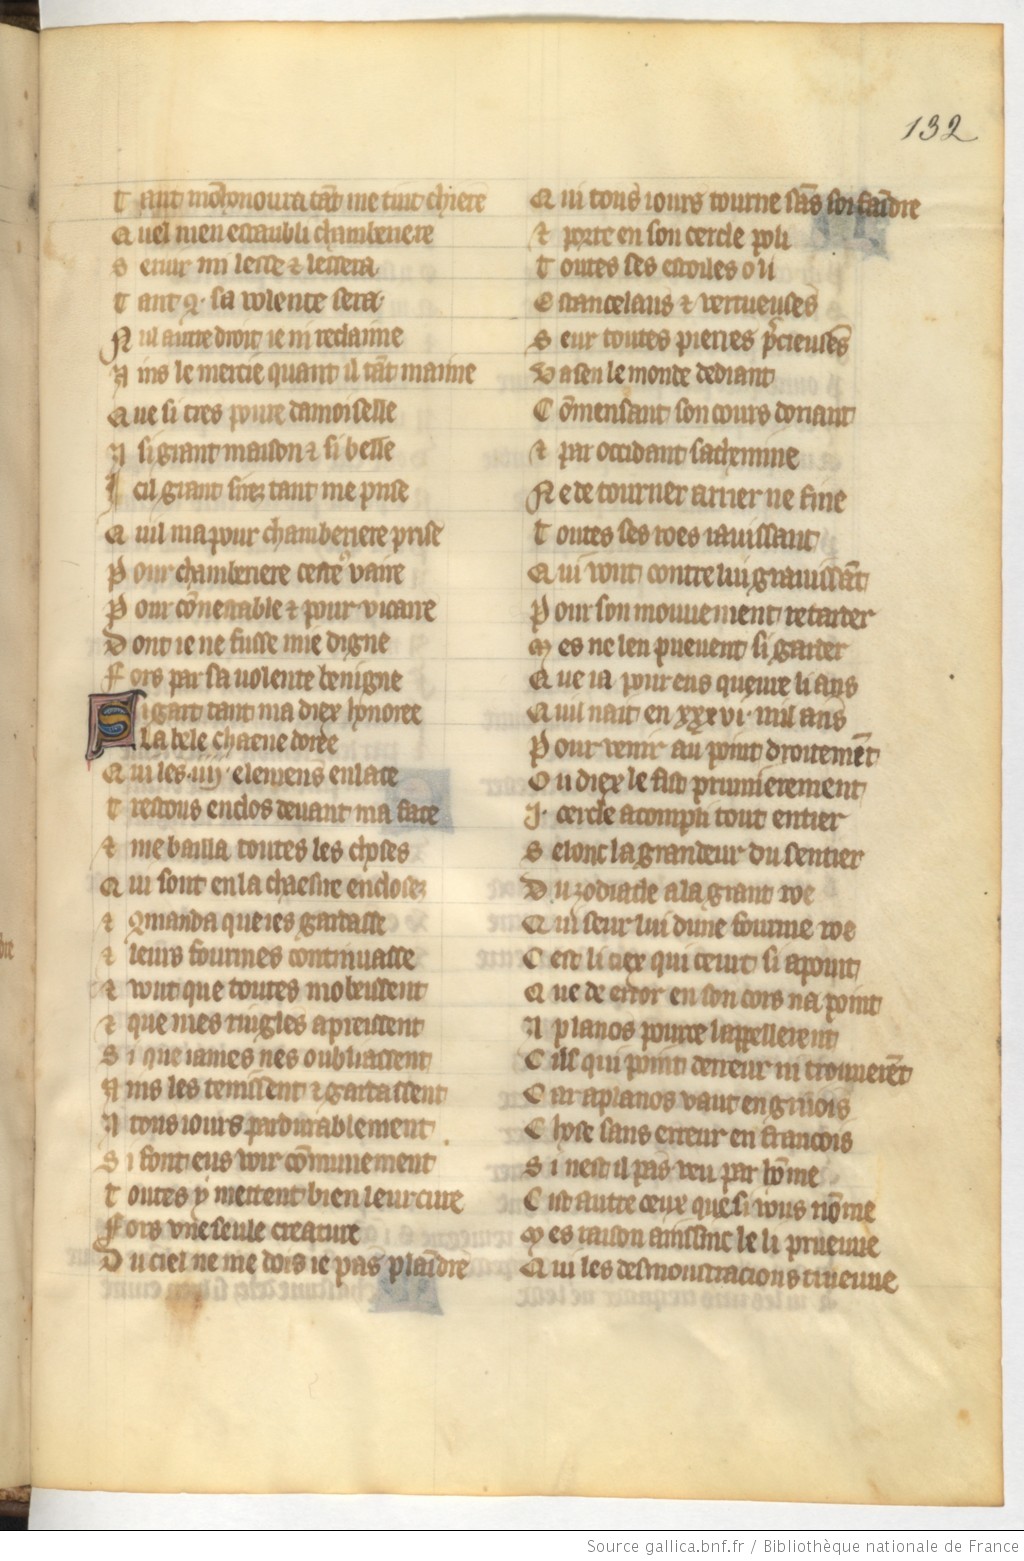 132
Tant mōhonoura tāt me tint chiere
Quel men estaubli chamberiere
Seruir mi lesse ⁊ lessera
Tant q̄ sa volente sera
Nul autre droit ie ni reclaime
Ains le mercie quant il tāt maime
Que si tres poure damoiselle
A si grant maison ⁊ si belle
I cil grant sirez tant me prise
Quil ma pour chamberiere prise
Pour chamberiere certe vaire
Pour cōnestable ⁊ pour vicaire
Dont ie ne fusse mie digne
Fors par sa volente benigne
Si gart tant ma diex honoree
La bele chaene doree
Qui les .iiij. elemens enlace
Trestous enclos deuant ma face
⁊ me bailla toutes les choses
Qui sont en la chaesne enclosez
⁊ ꝯmanda que ies gardasse
⁊ leurs fourmes continuasse
⁊ vout que toutes mobeissent
⁊ que mes riugles apreissent
Si que iames nes oubliassent
Ains les tenissent ⁊ gardassent
A tous iours pardurablement
Si font eus voir cōmunement
Toutes y metent bien leur cure
Fors vne seule creature
Du ciel ne me dois ie pas plaīdre
Qui tous iours tourne sās soi faīdre
⁊ porte en son cercle poli
Toutes ses estoiles o li
Estancelans ⁊ vertueuses
Seur toutes pierres p̄cieuses
Va sen le monde deduant
Cōmensant son cours doriant
⁊ par occidant sachemine
Ne de tourner arrier ne fine
Toutes ses roes rauissant
Qui vont contre lui grauissāt
Pour son mouuement retarder
Mes ne len pueuent si garder
Que ia pour eus queure li ans
Quil nait en xxxvi. mil ans
Pour venir au point droitemēt
Ou diex le fist prumierement
I. cercle acompli tout entier
Selonc la grandeur du sentier
Du zodiacle a la grant roe
Qui seur lui dune fourme roe
Cest li ciex qui ceurt si apoint
Que de error en son cors na point
Aplanos pource lappellerent
Cill qui point derreur ni trouuerēt
Car aplanos vaut en griiois
Chose sans erreur en francois
Si nest il pas veu par hōme
Cist autre ceux que si vous nōme
Mes raison ainssinc le li prueuue
Qui les desmoustracions trueuue
Source gallica.bnf.fr / Bibliothèque nationale de France